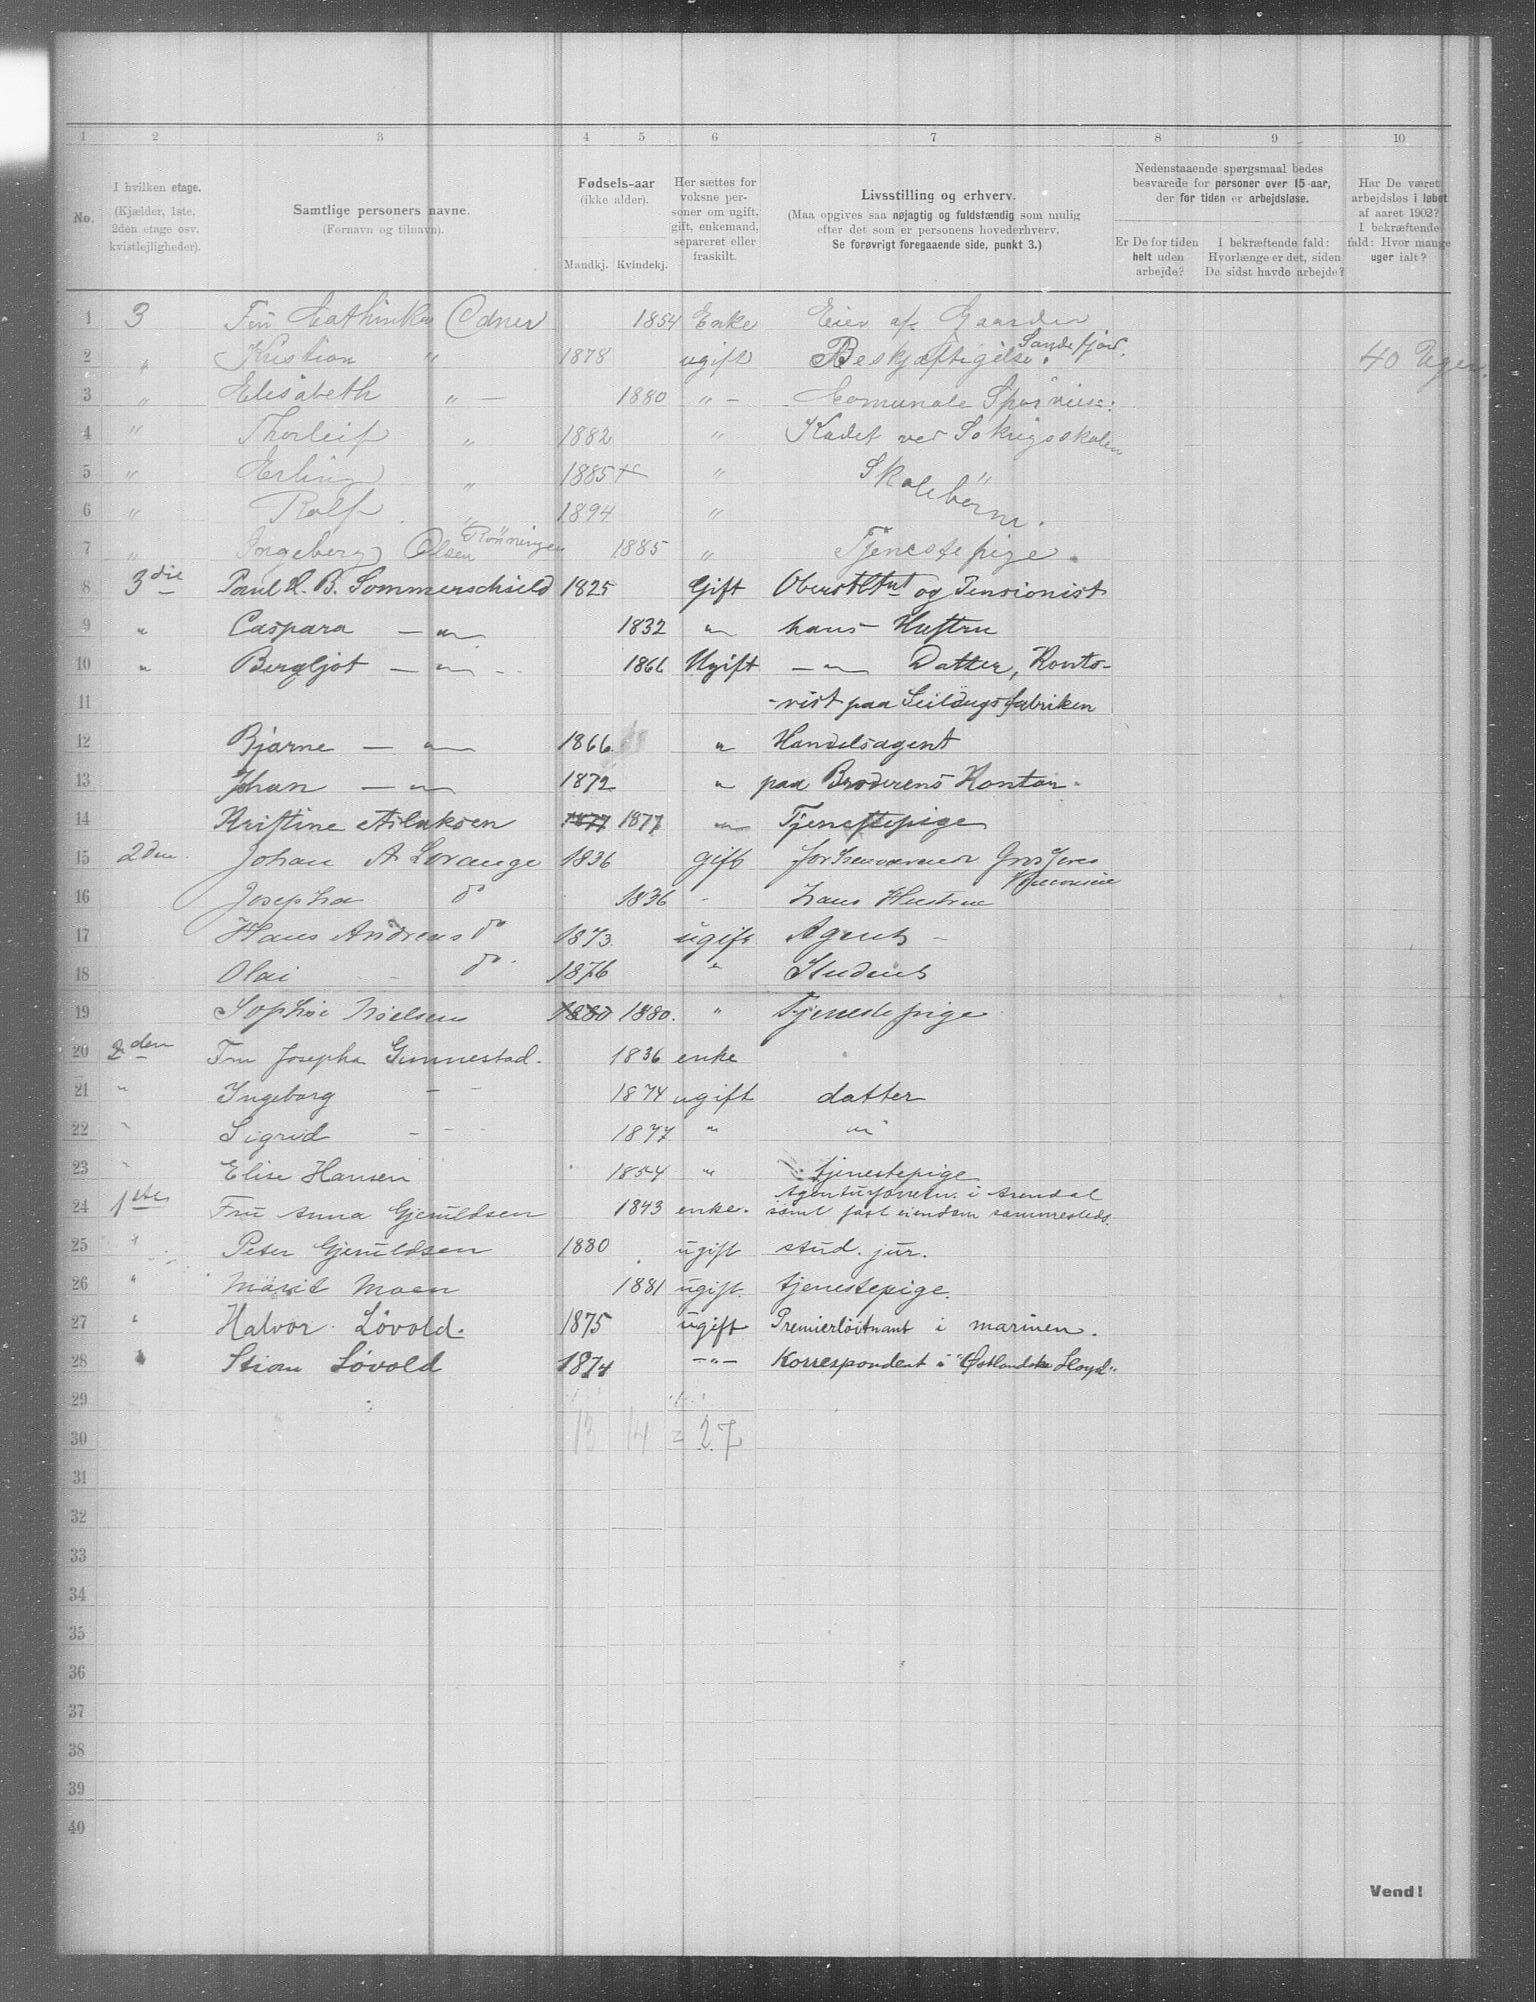 1 2 3 4 5 6 7 8 9 10
No.
I hvilken etage.
(Kjælder, 1ste,
2den etage osv.
kvistlejligheder).
Samtlige personers navne.
(Fornavn og tilnavn).
Fødsels-aar
(ikke alder).
Mandkj. Kvindekj.
Her sættes for
voksne per-
soner om ugift,
gift, enkemand,
separeret eller
fraskilt.
Livsstilling og erhverv.
(Maa opgives saa nøjagtig og fuldstændig som mulig
efter det som er personens hovederhverv.
Se forøvrigt foregaaende side, punkt 3.)
Nedenstaaende spørgsmaal bedes
besvarede for personer over 15 aar,
der for tiden er arbejdsløse.
Er De for tiden
helt uden
arbejde?
I bekræftende fald:
Hvorlænge er det, siden
De sidst havde arbejde?
Har De været
arbejdsløs i løbet
af aaret 1902?
I bekræftende
fald: Hvor mange
uger ialt?
1 3 Fru Cathinka Odner 1854 Enke Eier af Gaarden
2 " Kristian " 1878 ugift Beskjæftigelse. Sandefjord. 40 Uger.
3 " Elisabeth " — 1880 " — Comunale Sporveie.
4 " Thorleif " 1882 " Kadet ved Søkrigsskolen
5 " Erling " 1885 " Skolebørn "
6 " Rolf " 1894 "
7 " Ingeborg Olsen Rønningen 1885 " Tjenestepige.
8 3die Poul H. B. Sommerschield 1825 Gift Oberstltnt og Pensionist
9 " Caspara — " — 1832 " hans Hustru
10 " Bergljot — " — 1866 Ugift — " — Datter, Konto-
11 -rist paa Seildugsfabriken
12 Bjarne — " — 1866 " Handelsagent
13 Johan — " — 1872 " paa Broderens Kontor.
14 Kristine Aslaksen 1877 1877 " Tjenestepige
15 2den. Johan A Lorange 1836 gift forhenværende Grosserer
16 Josepha do 1836 " hans Hustrue
17 Hans Andreas do 1873 ugift Agent —
18 Olai do 1876 " Student
19 Sophie Nielsen 1880 1880. " Tjenestepige
20 2den Fru Josepha Gunnestad. 1836 enke
21 " Ingeborg — — 1874 ugift datter
22 " Sigrid - - - 1877 " "
23 " Elise Hansen 1854 " tjenestepige
24 1ste Fru Anna Gjeruldsen 1843 enke. Agenturforretn. i Arendal
samt fast eiendom sammesteds.
25 " Peter Gjeruldsen 1880 ugift stud. jur.
26 " Marit Moen 1881 ugift. tjenestepige.
27 " Halvor Løvold. 1875 ugift Premierløitnant i marinen.
28 " Stian Løvold 1874 — " — Korrespondent i "Østlandske Lloyd".
29
30 13 14 = 27
31
32
33
34
35
36
37
38
39
40
Vend!